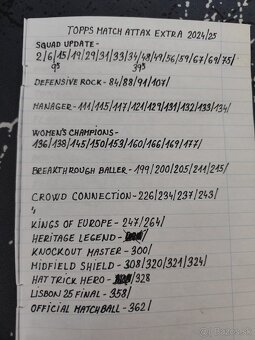 TOPPS MATCH ATTAX EXTRA 2024/25
SQUAD UPDATE-
2/6/15/19/29/31/33/34/48/49/56/59/67/69/75/
DEFENSIVE ROCK- 84/88/91/107/
MANAGER- 111/115/117/121/129/131/132/133/134/
WOMEN'S CHAMPIONS-
136/138/145/150/153/160/166/169/177/
BREAKTHROUGH BALLER- 199/200/205/211/215/
CROWD CONNECTION- 226/234/237/243/
KINGS OF EUROPE- 247/264/
HERITAGE LEGEND- /
KNOCKOUT MASTER- 300/
MIDFIELD SHIELD- 308/320/321/324/
HAT TRICK HERO- /328
LISBON 25 FINAL- 358/
OFFICIAL MATCHBALL- 362/
bazos.sk